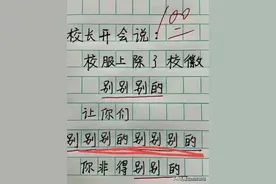 100
校长开会说：
校服上除了校徽
别别别的
让你们
别别别的别别别的
你非得别别的